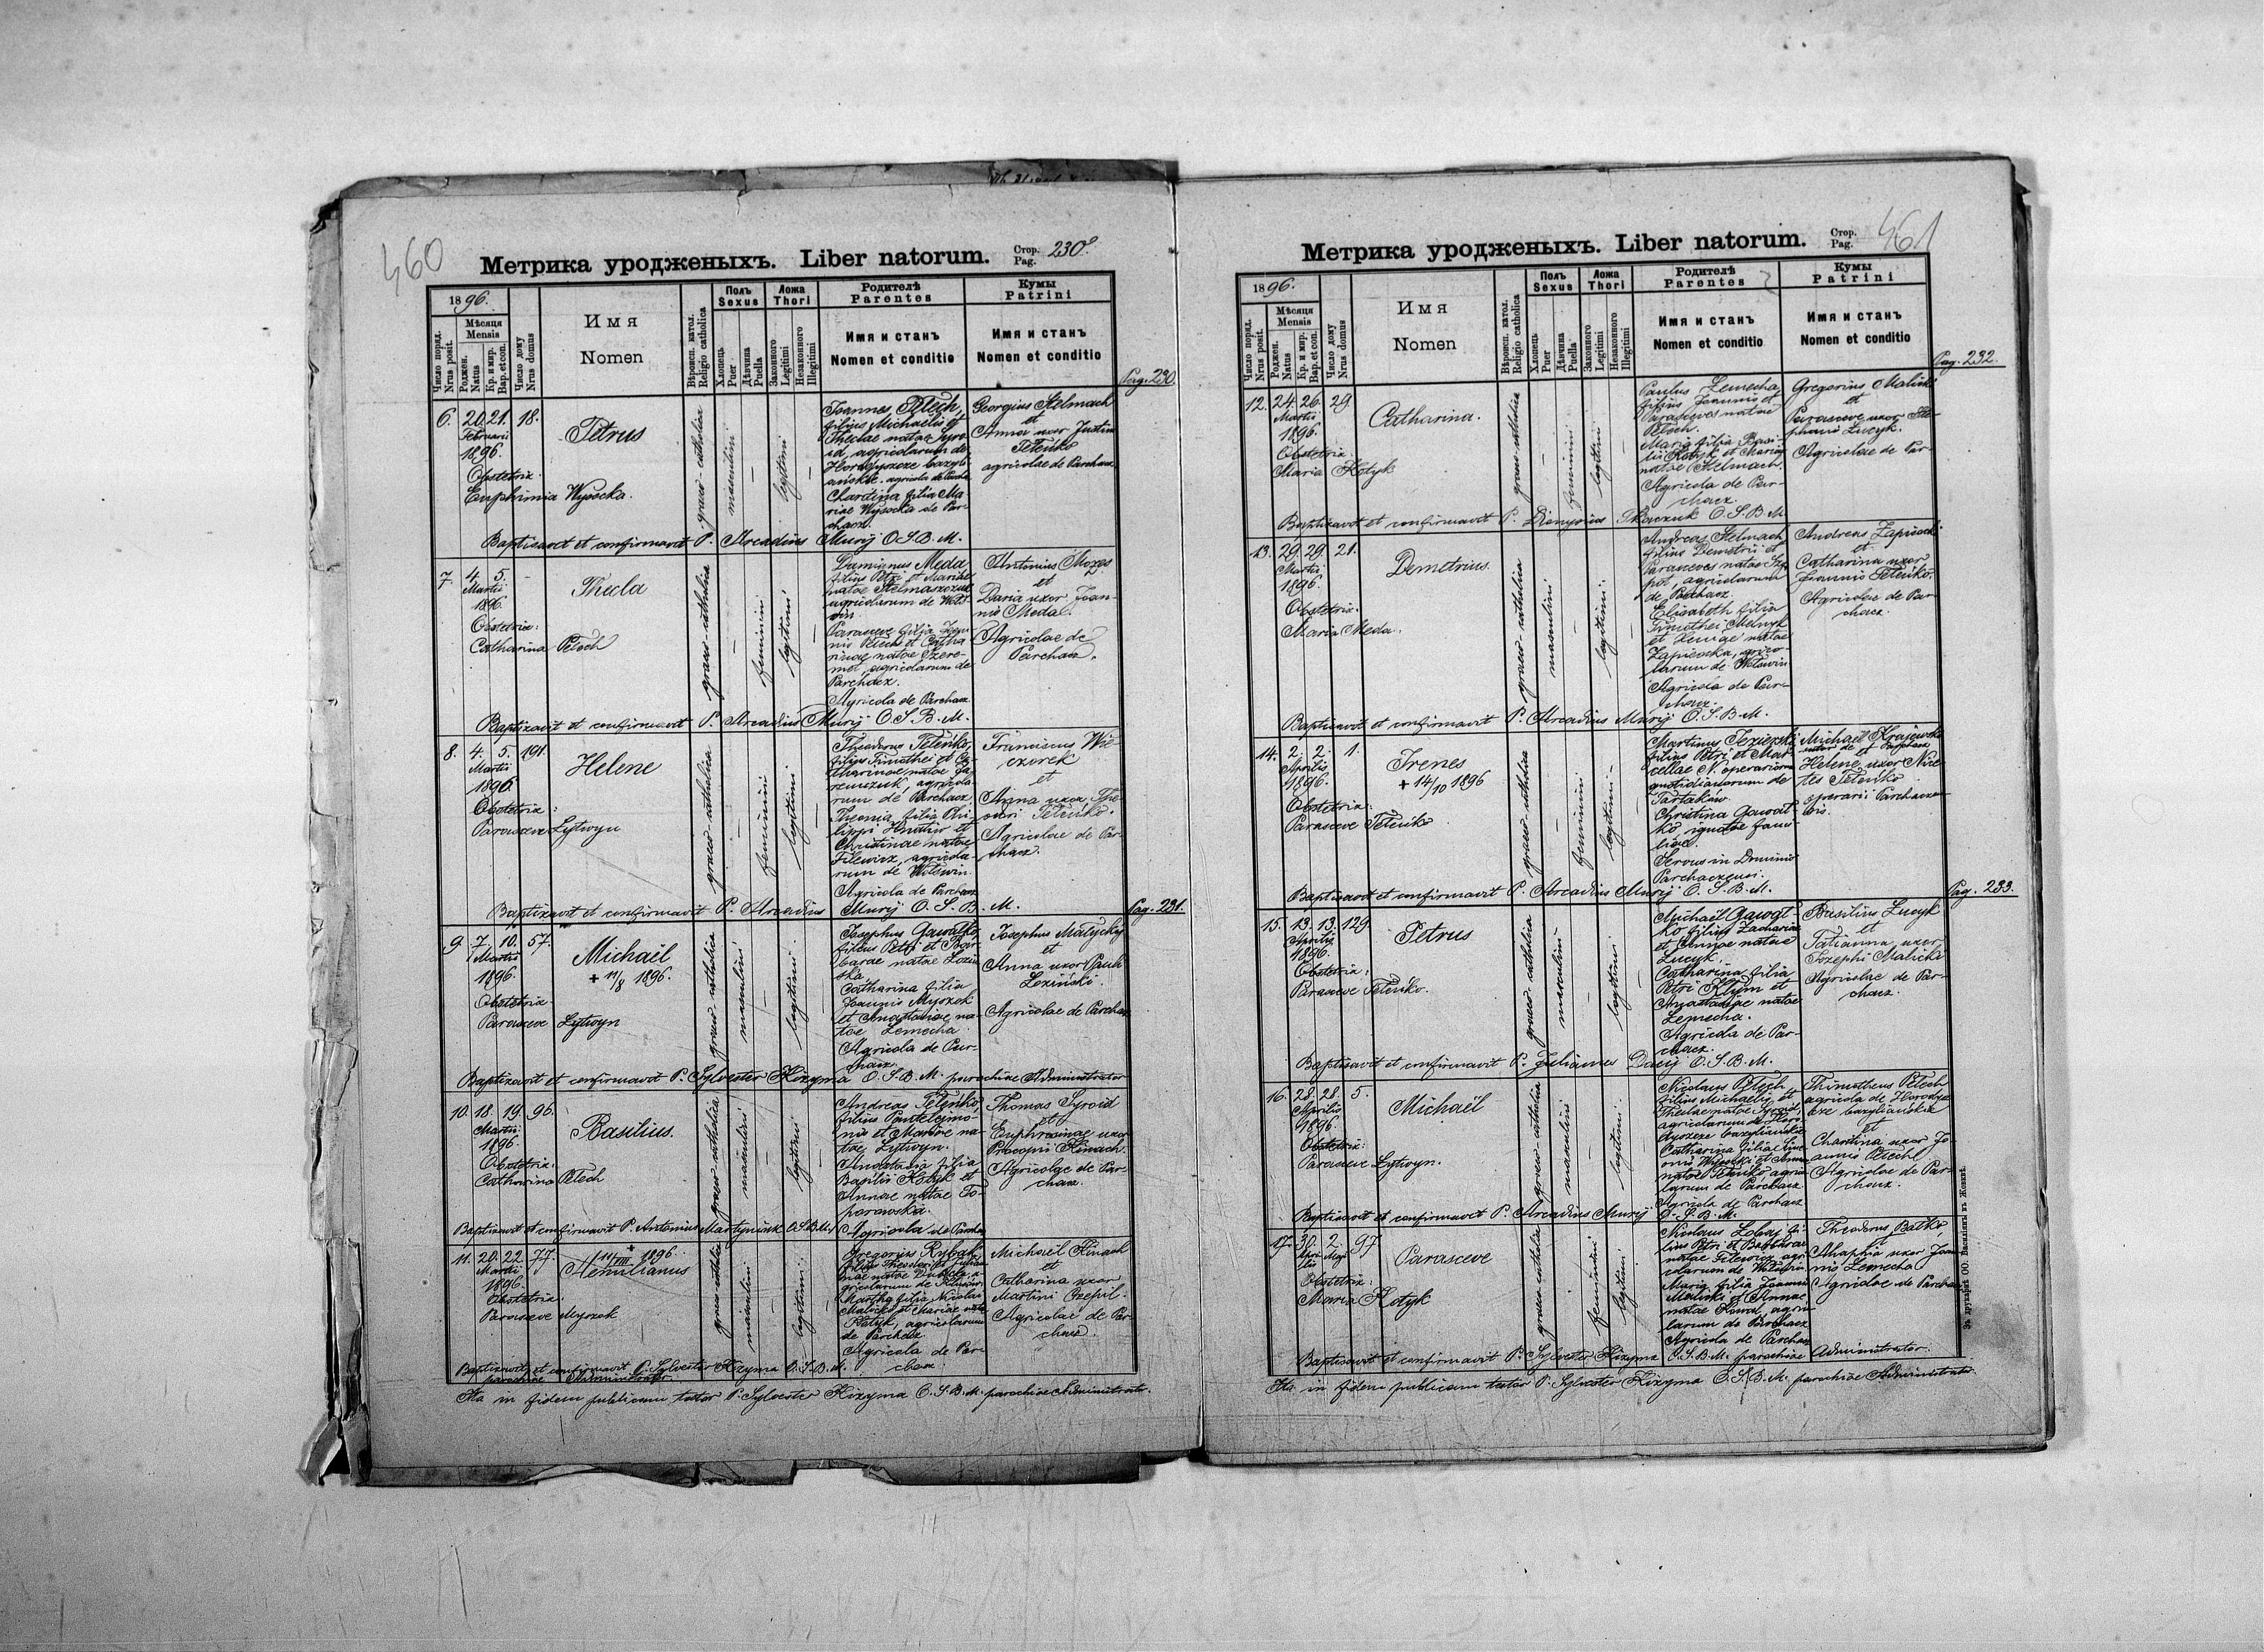 460
Метрика уродженыхъ. Liber natorum.
Стор.
Pag.
230
1896.
Число поряд.
Nrus posit.
Мѣсяця
Mensis
Роджен.
Natus
Кр. и мир.
Bap. et con.
Число дому
Nrus domus
Имя
Nomen
Вѣроисп. катол.
Religio catholica
Полъ
Sexus
Хлопець
Puer
Дѣвчина
Puella
Ложа
Thori
Законного
Legitimi
Незаконного
Illegitimi
Родителѣ
Parentes
Имя и станъ
Nomen et conditio
Кумы
Patrini
Имя и станъ
Nomen et conditio
Pag. 230
6. 20. 21. 18.
Februarii
1896.
Obstetrix
Euphimia Wysocka.
Petrus
graeco-catholica
masculini
legitimi
Joannes Petech,
filius Michaelis et
Theclae natae
agricolarum de
Chartina filia Ma-
riae Wysocka de Par-
chacz.
Georgius Stelmach
et
Anna uxor Justini
Teteńko
agricolae de Parchacz
Baptizavit et confirmavit P. Arcadius Muryj O.S.B.M.
7. 4. 5.
Martii
1896.
Obstetrix:
Catharina Petech
Thecla
graeco-catholica
feminini
legitimi
Damianus Meda
filius Petri et Mariae
natae Stelmaszczuk
agricolarum de Wols-
win.
Parasceve filia Joan-
nis Petech et Catha-
rinae natae Szere-
met, agricolarum de
Parchacz.
Agricola de Parchacz
Antonius Mozes
et
Daria uxor Joan-
nis Meda.
Agricolae de
Parchacz.
Baptizavit et confirmavit P. Arcadius Muryj O.S.B.M.
8. 4. 5. 191.
Martii
1896.
Obstetrix:
Parasceve Lytwyn
Helene
graeco-catholica
feminini
legitimi
Theodorus Teteńko,
filius Timothei et Ca-
tharinae natae Ja-
remczuk, agricola-
rum de Parchacz.
Theonia filia Phi-
lippi Hnatiw et
Christinae natae
Filewicz, agricola-
rum de Wolswin.
Agricola de Parchacz
Franciscus Wie-
czorek
et
Anna uxor The-
odori Teteńko.
Agricolae de Par-
chacz.
Baptizavit et confirmavit P. Arcadius Muryj O.S.B.M.
Pag. 231.
9. 7. 10. 57.
Martii
1896.
Obstetrix
Parasceve Lytwyn
Michaël
+ 11/8 1896.
graeco-catholica
masculini
legitimi
Josephus Gawałko
filius Petri et Bar-
barae natae Łoziń-
ska.
Catharina filia
Joannis Myszok
et Anastasiae na-
tae Lemecha.
Agricola de Par-
chacz.
Josephus Malycky
et
Anna uxor Pauli
Łoziński.
Agricolae de Parchacz
Baptizavit et confirmavit P. Sylvester Kizyma O.S.B.M. parochiae Administrator
10. 18. 19. 96.
Martii
1896.
Obstetrix:
Catharina Petech
Basilius.
graeco-catholica
masculini
legitimi
Andreas Teteńko
filius Pantelejmo-
nis et Mariae na-
tae Lytwyn.
Anastasia filia
Basilii Kotyk et
Annae natae To-
porowska.
Agricola de Parchacz
Thomas Syroid
et
Euphrosinae uxor
Procopii Kinach.
Agricolae de Par-
chacz.
Baptizavit et confirmavit P. Antonius Martyniuk O.S.B.M.
11. 20. 22. 77.
Martii
1896.
Obstetrix.
Parasceve Myszok
+ 11/VIII 1896.
Aemilianus
graeco-catholica
masculini
legitimi
Gregorius Rybak
filius Theodori et
Martha filia Nicolai
Malicki et Mariae natae
Kotyk, agricolarum
de Parchacz
Agricola de Par-
chacz.
Michaël Kinach
et
Catharina uxor
Martini Czepil.
Agricolae de Par-
chacz.
Baptizavit et confirmavit P. Sylvester Kizyma O.S.B.M.
parochiae Administrator
Ita in fidem publicam testor P. Sylvester Kizyma O.S.B.M. parochiae Administrator.
461
Метрика уродженыхъ. Liber natorum.
Стор.
Pag.
1896.
Число поряд.
Nrus posit.
Мѣсяця
Mensis
Роджен.
Natus
Кр. и мир.
Bap. et con.
Число дому
Nrus domus
Имя
Nomen
Вѣроисп. катол.
Religio catholica
Полъ
Sexus
Хлопець
Puer
Дѣвчина
Puella
Ложа
Thori
Законного
Legitimi
Незаконного
Illegitimi
Родителѣ
Parentes
Имя и станъ
Nomen et conditio
Кумы
Patrini
Имя и станъ
Nomen et conditio
Pag. 232.
12. 24. 26. 29
Martii
1896.
Obstetrix
Maria Kotyk
Catharina.
graeco-catholica
feminini
legitimi
Paulus Lemecha,
filius Joannis et
Parasceves natae
Petech.
Maria filia Basi-
lii Kotyk et Mariae
natae Stelmach.
Agricola de Par-
chacz.
Gregorius Malicki
et
Parasceve uxor Ste-
phani Lucyk.
Agricolae de Par-
Baptizavit et confirmavit P. Dionysius Tkaczuk O.S.B.M
13. 29. 29. 21.
Martii
1896.
Obstetrix.
Maria Meda.
Demetrius.
graeco-catholica
masculini
legitimi.
Andreas Stelmach
filius Demetrii et
Parasceves natae
agricolarum
de Parchacz.
Elisabeth filia
Timothei Melnyk
et natae
Zapisocka, agrico-
larum de Wolswin
Agricola de Par-
chacz.
Andreas Zapisocki
et
Catharina uxor
Joannis Teteńko.
Agricolae de Par-
chacz.
Baptizavit et confirmavit P. Arcadius Muryj O.S.B.M.
14. 2. 2. 1.
Aprilis
1896.
Obstetrix:
Parasceve Teteńko
Irenes
+ 14/10 1896
graeco-catholica
feminini
legitimi
Martinus Jezierski
filius Petri et Mar-
cellae N. operariorum
quotidianorum de
Tartaków
Christina Gawał-
ko ignotae fami-
liae.
Servus in Dominio
Parchaczensi.
Michaël Krajewski
et
Helene uxor Nice-
tes Teteńko
operarii Parchaczen-
sis.
Baptizavit et confirmavit P. Arcadius Muryj O.S.B.M.
Pag. 233.
15. 13. 13. 129.
Aprilis
1896.
Obstetrix:
Parasceve Teteńko.
Petrus
graeco-catholica
masculini
legitimi
Michaël Gawał-
ko filius Zachariae
et Annae natae
Lucyk.
Catharina filia
Petri Klym et
Anastasiae natae
Lemecha.
Agricola de Par-
chacz.
Basilius Lucyk
et
Tatianna uxor
Josephi Malicki
Agricolae de Par-
chacz.
Baptizavit et confirmavit P. Julianus Dacij O.S.B.M.
16. 28. 28. 5.
Aprilis
1896.
Obstetrix:
Parasceve Lytwyn.
Michaël
graeco-catholica
masculini
legitimi
Nicolaus Petech
filius Michaelis et
Theclae natae Syroid,
agricolarum de Horo-
dyszcze bazyliańskie
Catharina filia Sime-
onis Wysocki et Annae
natae Teteńko agrico-
larum de Parchacz
Agricola de Parchacz
Thimotheus Petech
agricola de Horodysz-
cze bazyliańskie
et
Chartina uxor Jo-
annis Petech
Agricolae de Par-
chacz.
Baptizavit et confirmavit P. Arcadius Muryj O.S.B.M.
17. 30. 2. 97
Apri- Maji
lis
Obstetrix:
Maria Kotyk
Parasceve
graeco-catholica
feminini
legitimi
Nicolaus Lobay fi-
lius Petri et Barbarae
natae Filewicz agri-
colarum de Wolswin
Maria filia Joannis
Malicki et Annae
natae Kowal, agrico-
larum de Parchacz
Agricola de Parchacz
Theodorus Batko,
Ahaphia uxor Joan-
nis Lemecha
Agricolae de Parchacz
Baptizavit et confirmavit P. Sylvester Kizyma O.S.B.M. parochiae Administrator.
Ita in fidem publicam testor P. Sylvester Kizyma O.S.B.M. parochiae Administrator.
Зъ друкарнѣ ОО. Василіянъ въ Жовкві.